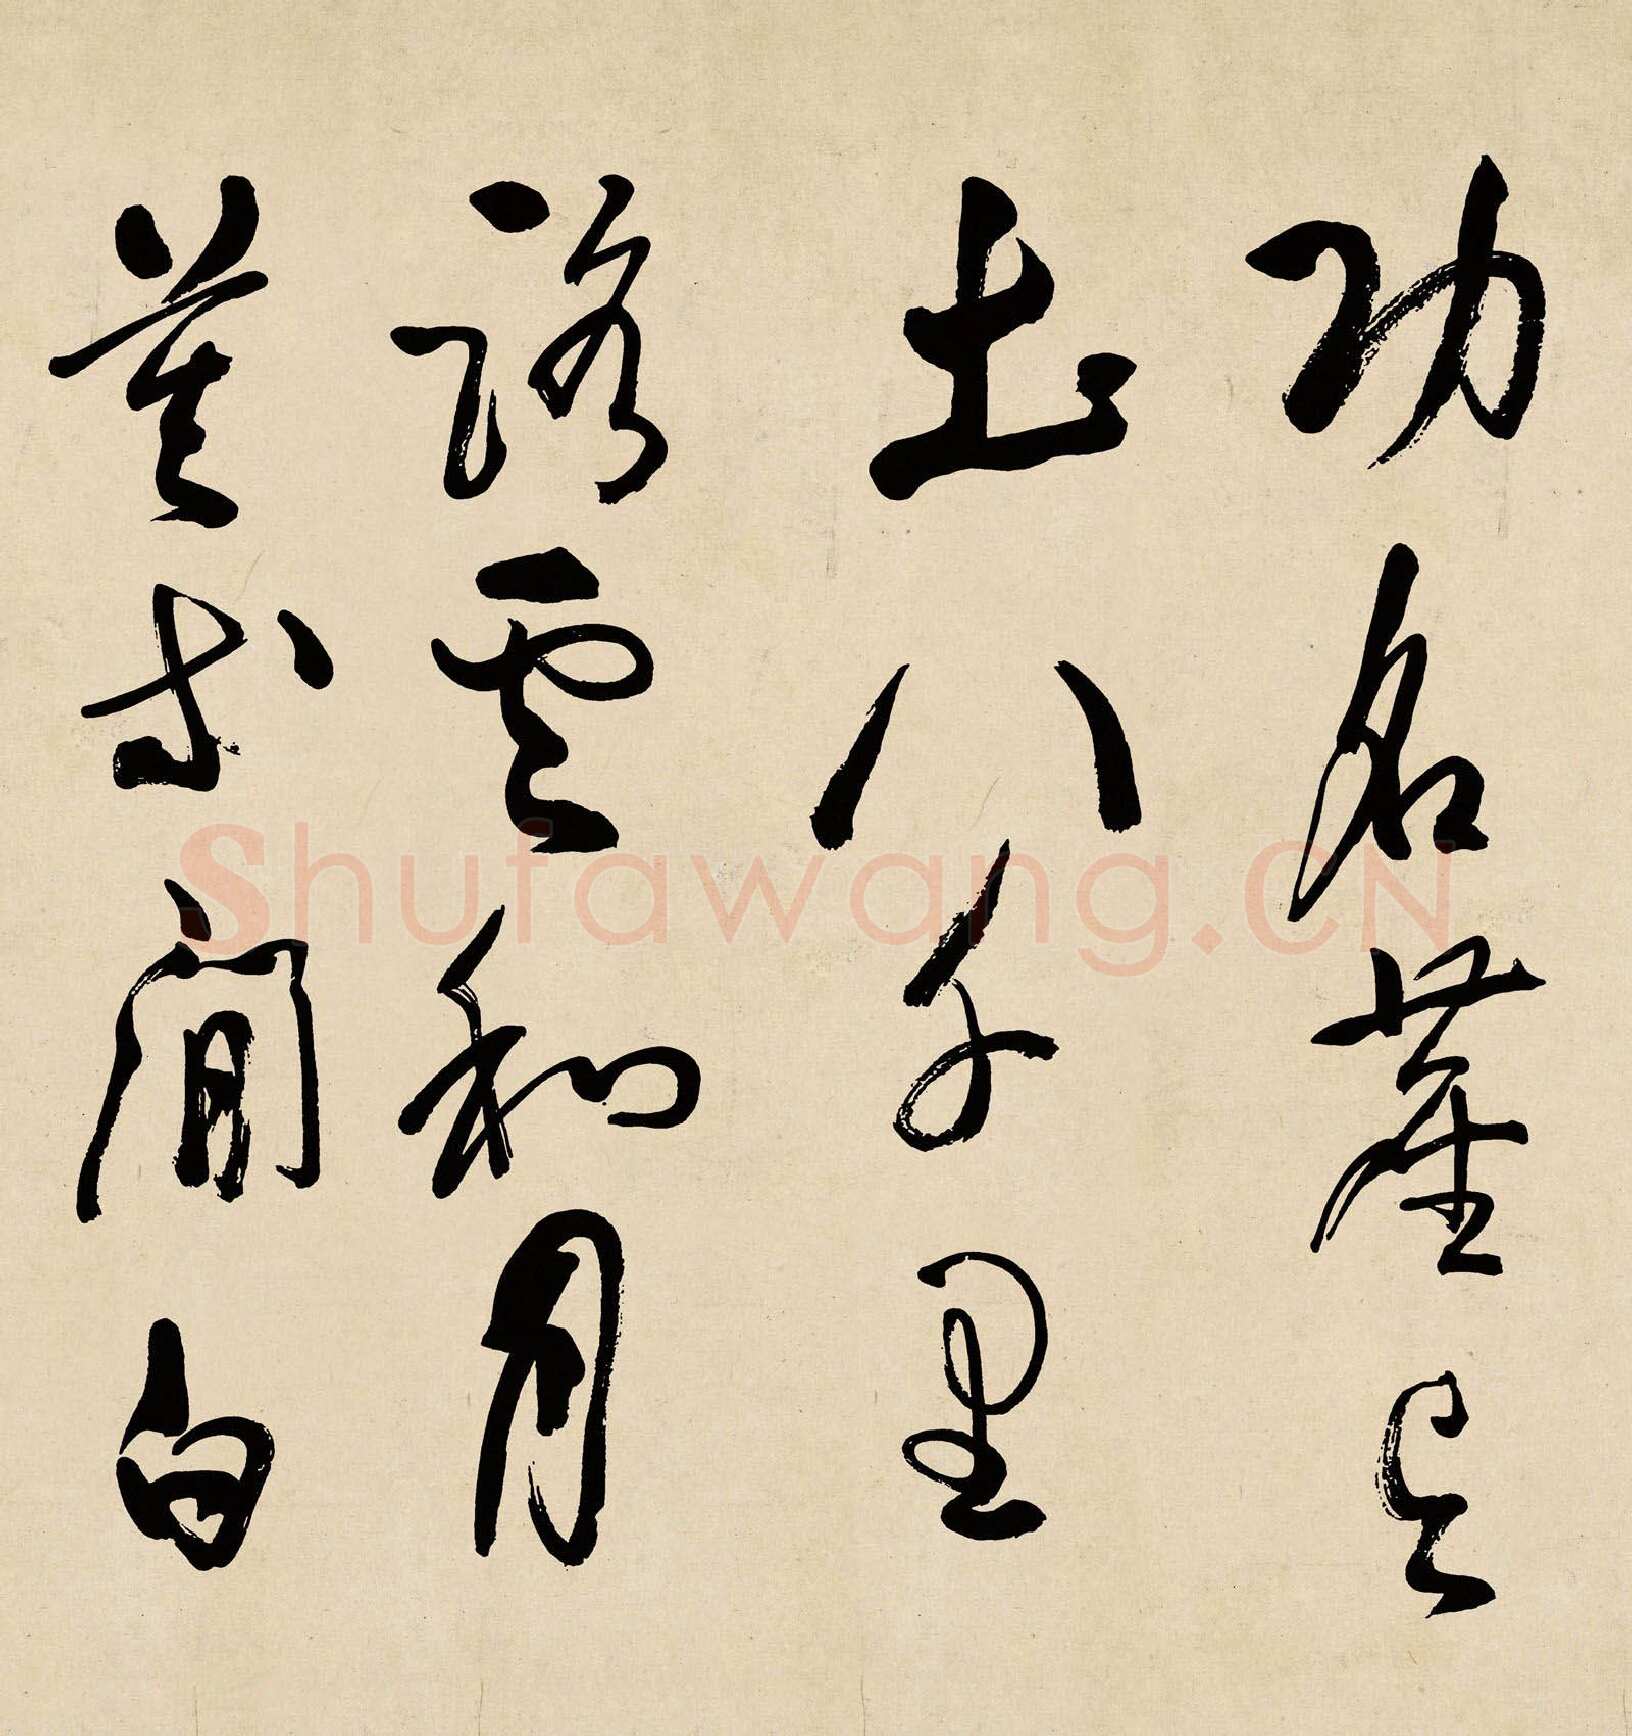 功名塵與
土八千里
路雲和月
莫等閒白
Shufawang.CN